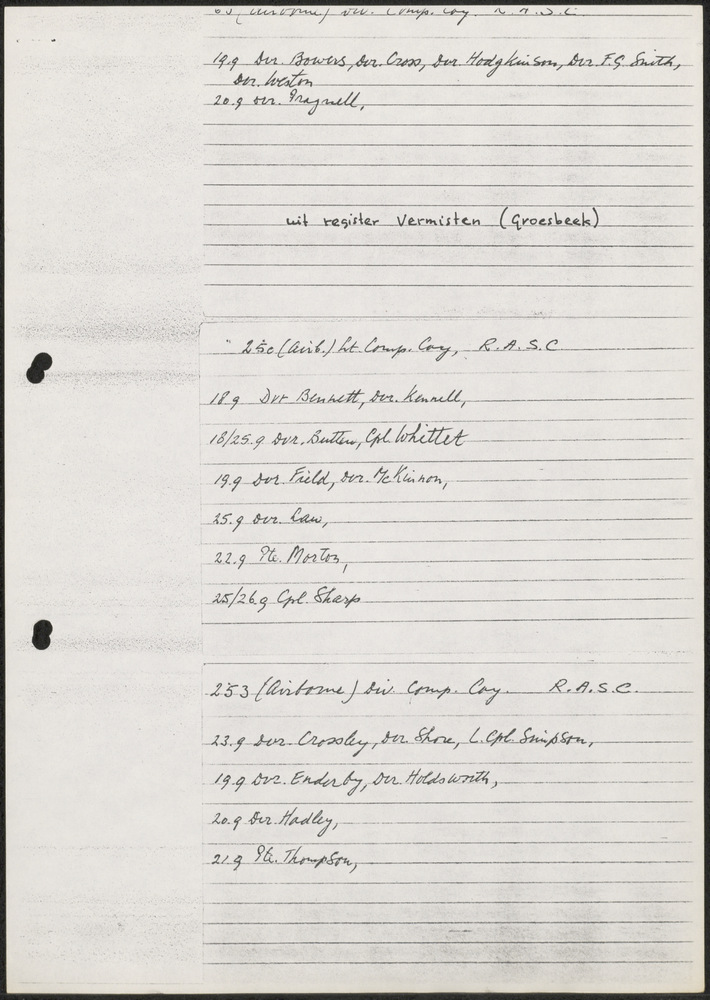 63 (Airborne) Div. Comp. Coy. R.A.S.C.
19.9 Dvr. Bowers, Dvr. Cross, Dvr. Hodgkinson, Dvr. F.G. Smith,
Dvr. Weston
20.9 Dvr. Pragnell,
uit register Vermisten (Groesbeek)
" 250 (Airb.) Lt. Comp. Coy, R.A.S.C
18.9 Dvr Bennett, Dvr. Kennell,
18/25.9 Dvr. Button, Cpl. Whittet
19.9 Dvr. Field, Dvr. McKinnon,
25.9 Dvr. Law,
22.9 Pte. Morton,
25/26.9 Cpl. Sharp
253 (Airborne) Div. Comp. Coy. R.A.S.C.
23.9 Dvr. Crossley, Dvr. Shore, L.Cpl. Simpson,
19.9 Dvr. Enderby, Dvr. Holdsworth,
20.9 Dvr. Hadley,
21.9 Pte. Thompson,